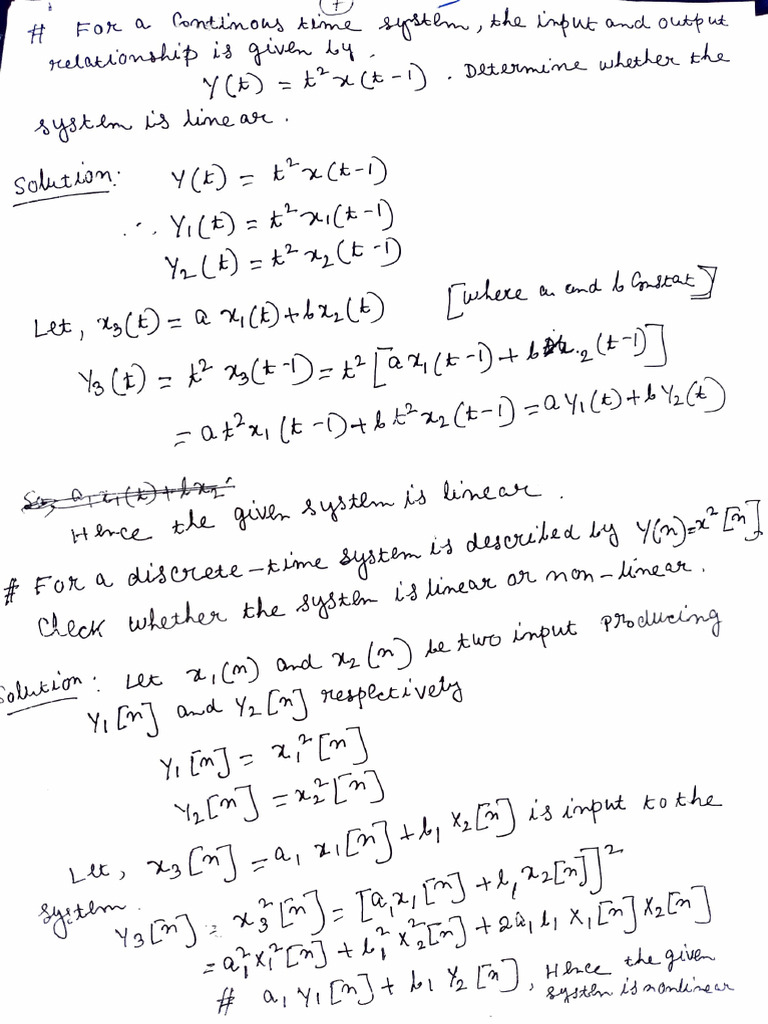 7
# For a Continous time system, the input and output
relationship is given by.
Y(t) = t² x(t-1). Determine whether the
system is linear.
Solution: Y(t) = t² x(t-1)
∴ Y₁(t) = t² x₁(t-1)
Y₂(t) = t² x₂(t-1)
Let, x₃(t) = a x₁(t) + b x₂(t) [where a and b Constat]
Y₃(t) = t² x₃(t-1) = t² [a x₁(t-1) + b x₂(t-1)]
= a t² x₁(t-1) + b t² x₂(t-1) = a Y₁(t) + b Y₂(t)
Hence the given system is linear.
# For a discrete-time system is described by Y(n)=x²[n]
Check whether the system is linear or non-linear.
Solution: Let x₁(n) and x₂(n) be two input producing
Y₁[n] and Y₂[n] respectively
Y₁[n] = x₁²[n]
Y₂[n] = x₂²[n]
Let, x₃[n] = a₁ x₁[n] + b₁ x₂[n] is input to the
system.
Y₃[n] = x₃²[n] = [a₁x₁[n] + b₁x₂[n]]²
= a₁²x₁²[n] + b₁²x₂²[n] + 2a₁b₁ x₁[n] x₂[n]
# a₁ Y₁[n] + b₁ Y₂[n], Hence the given
system is nonlinear